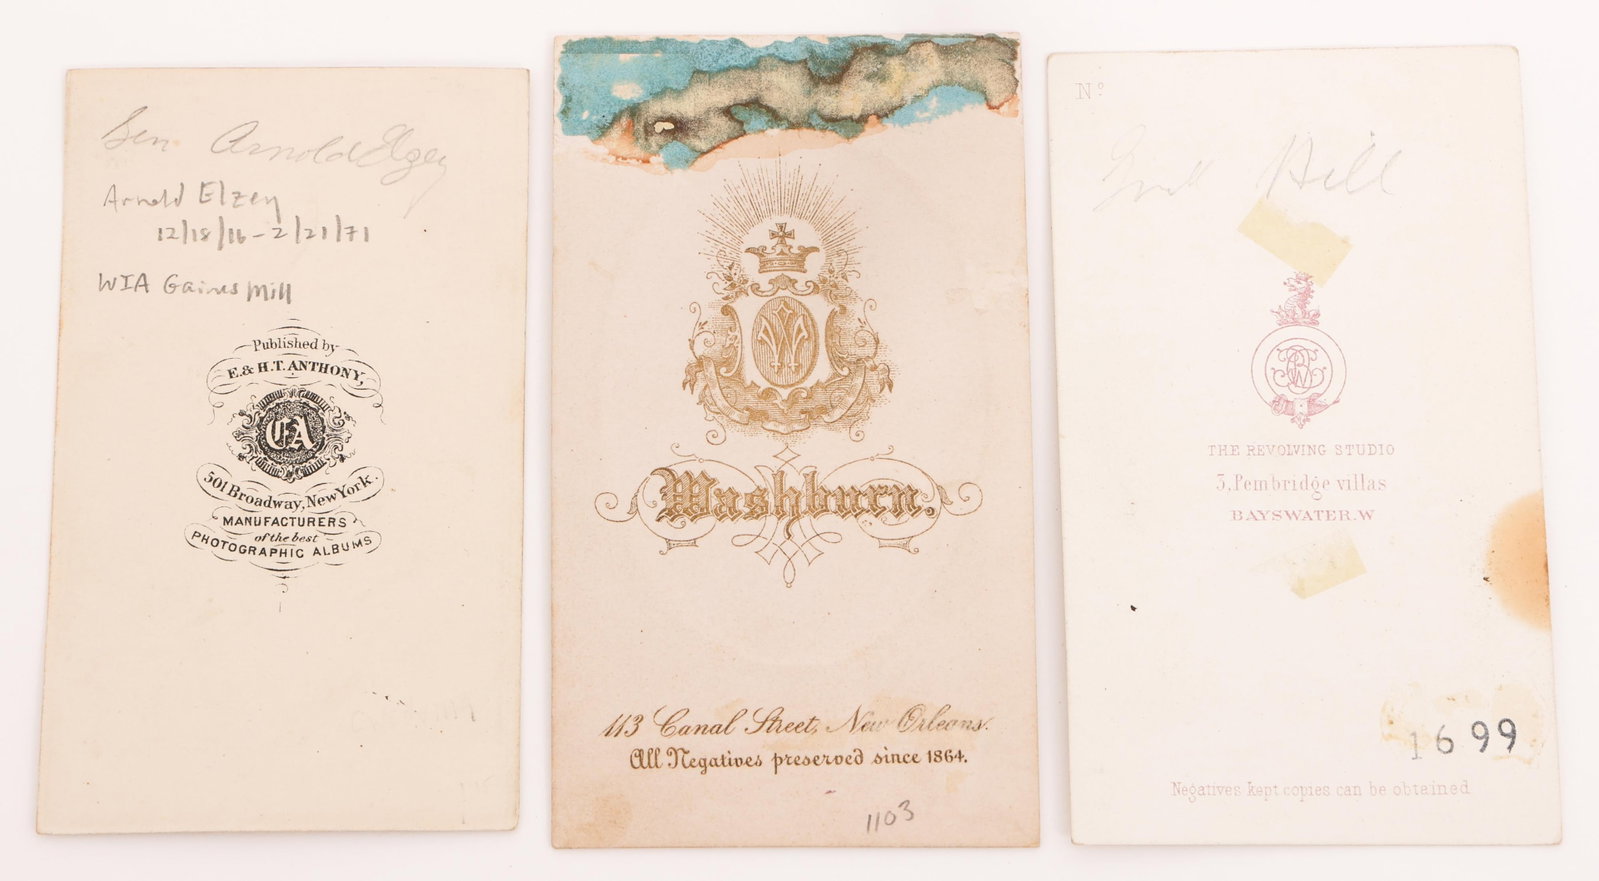 Gen. Arnold Elzey
Arnold Elzey
12/18/16 - 2/21/71
WIA Gaines Mill
Published by
E. & H.T. ANTHONY,
501 Broadway, New York.
MANUFACTURERS
of the best
PHOTOGRAPHIC ALBUMS
W
Washburn.
113 Canal Street, New Orleans.
All Negatives preserved since 1864.
1103
No
Hill
THE REVOLVING STUDIO
3, Pembridge villas
BAYSWATER. W
1699
Negatives kept copies can be obtained